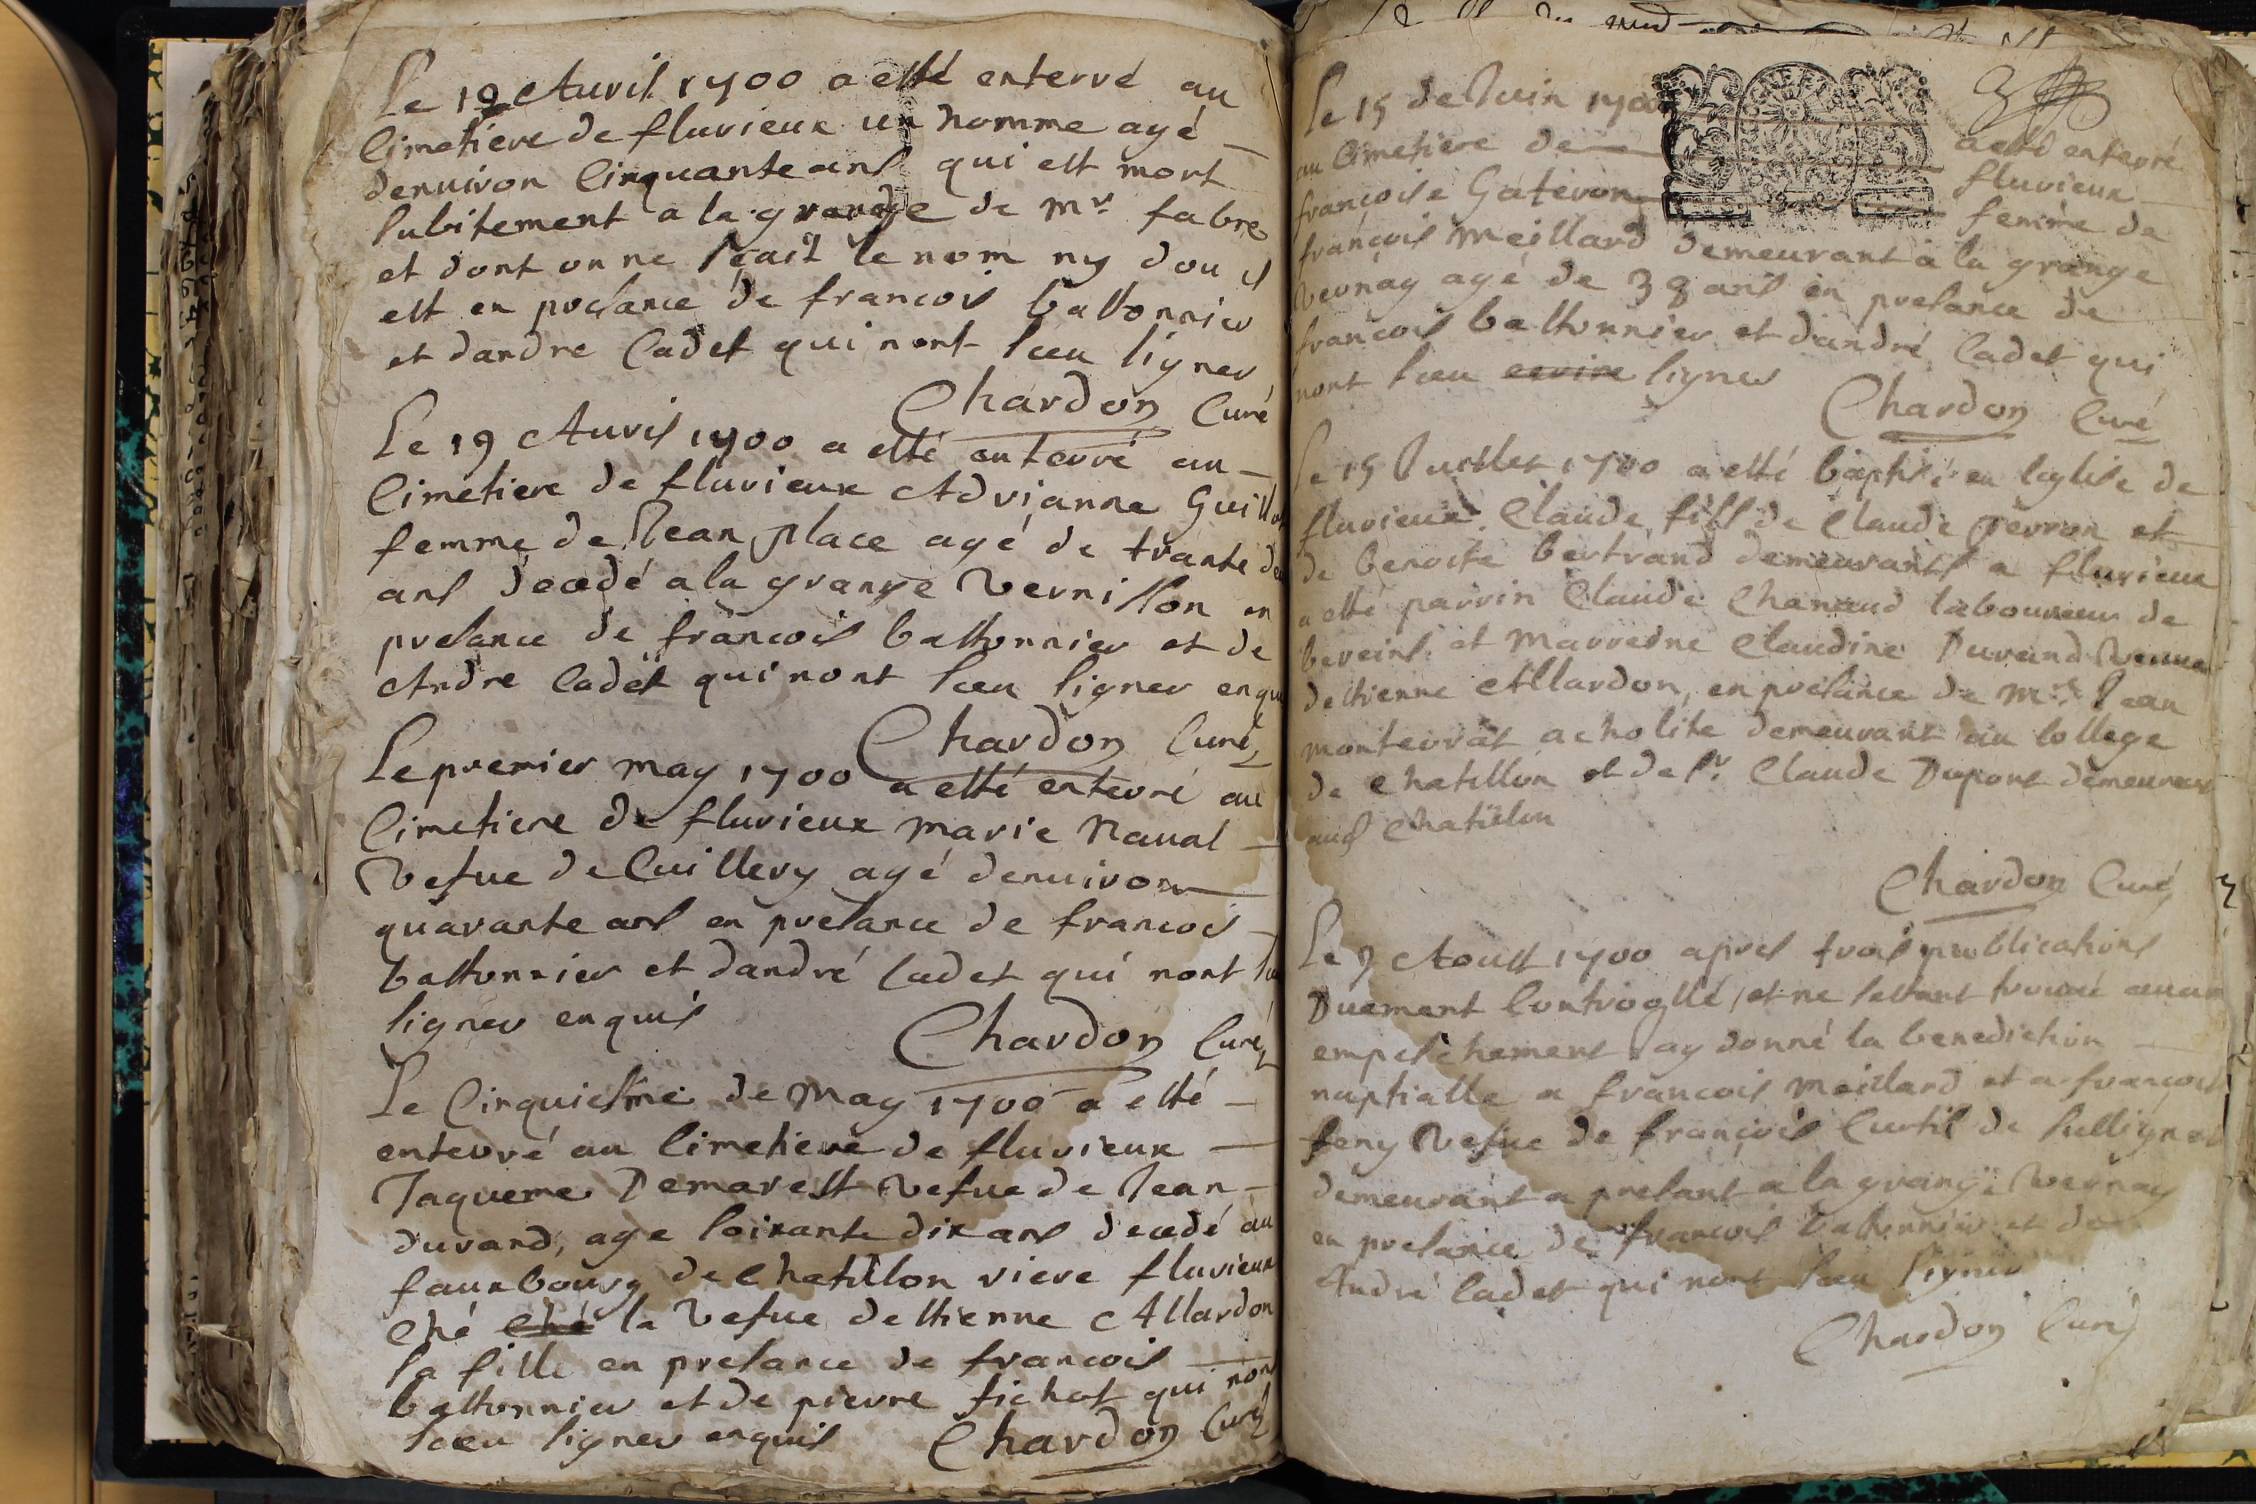 Le 19 Auvil 1700 a esté enterré au
Cimetiere de fluvieux un homme agé
denuiron Cinquante ans qui est mort
subitement a la grange de Mr. fabre
et dont on ne sçait le nom ny dou il
est en presance de francois bastonnier
et dandre Cadet qui nont sceu signer
Chardon Curé
Le 19 Auvil 1700 a esté enterré au
Cimetiere de fluvieux Adrianne
femme de Jean place agé de trante
ans decedé a la grange Vernisson en
presance de francois bastonnier et de
Andre Cadet qui nont sceu signer
Chardon Curé
Le premier may 1700 a esté enterré au
Cimetiere de fluvieux Marie Naual
Vefue de Cuillery agé denuiron
quarante ans en presance de francois
bastonnier et dandré Cadet qui nont
signer enquis
Chardon Curé
Le Cinquiesme de May 1700 a esté
enterré au Cimetiere de fluvieux
Jaqueme Demarest Vefue de Jean
durand, age soixante dix ans decedé au
fauxbourg de Chatillon riere fluvieux
ché ché la Vefue destienne Allardon
sa fille en presance de francois
bastonnier et de pierre fichet qui nont
sceu signer enquis Chardon Curé
Le 15 de Juin 1700 a esté enterré
au Cimetiere de fluvieux
francoise Gateron femme de
francois Meillard demeurant a la grange
Vernay agé de 38 ans en presance de
francois bastonnier et dandré Cadet qui
nont sceu ecrire signer
Chardon Curé
Le 15 Juillet 1700 a esté baptisé en leglise de
fluvieux Claude fils de Claude perron et
de benoite bertrand demeurants a fluvieux
a esté parrin Claude Chanaud laboureur de
bereins et Marresne Claudine Durand Vefue
destienne Allardon, en presance de Mre. Jean
monterrat acholite demeurant au College
de Chatillon et de Sr. Claude Dupont demeurant
aud Chatillon
Chardon Curé
Le Aoust 1700 apres trois publications
Duement Controgllé, et ne sestant trouué aucun
empeschement Jay donné la benediction
nuptialle a francois Meillard et a francoise
feny Vefue de francois Curtil de sullignat
demeurant a presant a la grange Vernay
en presance de francois bastonnier et de
André Cadet qui nont sceu signer
Chardon Curé